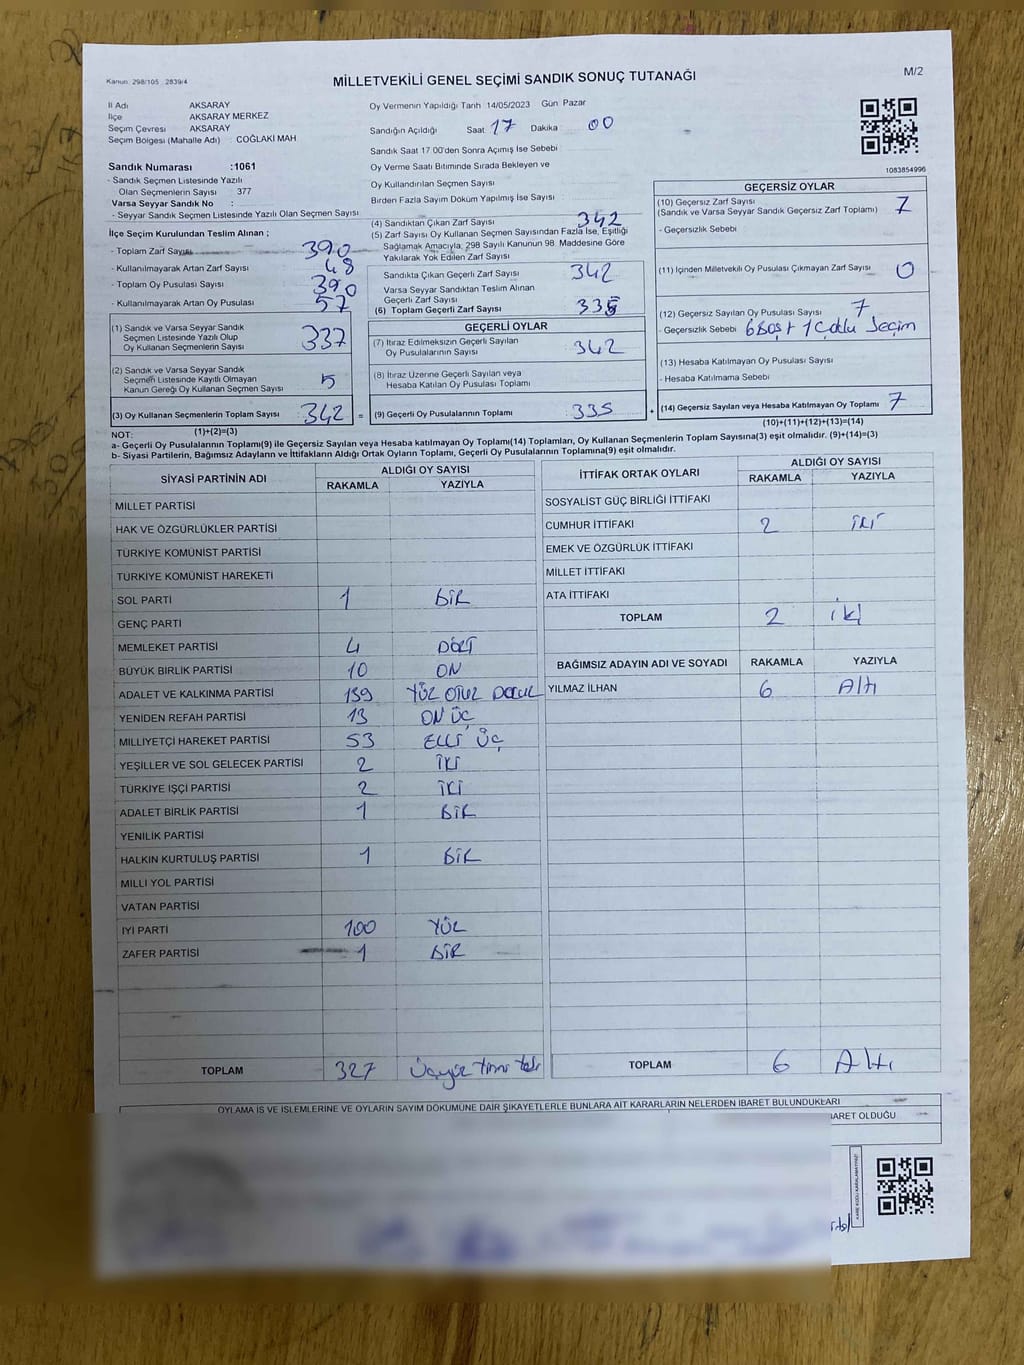 Kanun: 298/105 2839/4
MİLLETVEKİLİ GENEL SEÇİMİ SANDIK SONUÇ TUTANAĞI
M/2
İl Adı AKSARAY
İlçe AKSARAY MERKEZ
Seçim Çevresi AKSARAY
Seçim Bölgesi (Mahalle Adı) : COĞLAKİ MAH
Oy Vermenin Yapıldığı Tarih 14/05/2023 Gün Pazar
Sandığın Açıldığı Saat 17 Dakika 00
Sandık Saat 17:00'den Sonra Açımış İse Sebebi
Oy Verme Saati Bitiminde Sırada Bekleyen ve
Oy Kullandırılan Seçmen Sayısı
Birden Fazla Sayım Döküm Yapılmış İse Sayısı
1083854996
Sandık Numarası :1061
- Sandık Seçmen Listesinde Yazılı
Olan Seçmenlerin Sayısı 377
Varsa Seyyar Sandık No :
- Seyyar Sandık Seçmen Listesinde Yazılı Olan Seçmen Sayısı
İlçe Seçim Kurulundan Teslim Alınan ;
- Toplam Zarf Sayısı 390
- Kullanılmayarak Artan Zarf Sayısı 48
- Toplam Oy Pusulası Sayısı 390
- Kullanılmayarak Artan Oy Pusulası 57
(1) Sandık ve Varsa Seyyar Sandık
Seçmen Listesinde Yazılı Olup
Oy Kullanan Seçmenlerin Sayısı 337
(2) Sandık ve Varsa Seyyar Sandık
Seçmen Listesinde Kayıtlı Olmayan
Kanun Gereği Oy Kullanan Seçmen Sayısı 5
(3) Oy Kullanan Seçmenlerin Toplam Sayısı : 342
(1)+(2)=(3)
(4) Sandıktan Çıkan Zarf Sayısı 342
(5) Zarf Sayısı Oy Kullanan Seçmen Sayısından Fazla İse, Eşitliği
Sağlamak Amacıyla, 298 Sayılı Kanunun 98. Maddesine Göre
Yakılarak Yok Edilen Zarf Sayısı
Sandıkta Çıkan Geçerli Zarf Sayısı 342
Varsa Seyyar Sandıktan Teslim Alınan
Geçerli Zarf Sayısı
(6) Toplam Geçerli Zarf Sayısı 335
GEÇERLİ OYLAR
(7) İtiraz Edilmeksizin Geçerli Sayılan
Oy Pusulalarının Sayısı : 342
(8) İtiraz Üzerine Geçerli Sayılan veya
Hesaba Katılan Oy Pusulası Toplamı
= (9) Geçerli Oy Pusulalarının Toplamı : 335
GEÇERSİZ OYLAR
(10) Geçersiz Zarf Sayısı
(Sandık ve Varsa Seyyar Sandık Geçersiz Zarf Toplamı) 7
- Geçersizlik Sebebi
(11) İçinden Milletvekili Oy Pusulası Çıkmayan Zarf Sayısı 0
(12) Geçersiz Sayılan Oy Pusulası Sayısı 7
- Geçersizlik Sebebi 6 Boş + 1 Çoklu Seçim
(13) Hesaba Katılmayan Oy Pusulası Sayısı
- Hesaba Katılmama Sebebi
+ (14) Geçersiz Sayılan veya Hesaba Katılmayan Oy Toplamı 7
(10)+(11)+(12)+(13)=(14)
NOT:
a- Geçerli Oy Pusulalarının Toplamı(9) ile Geçersiz Sayılan veya Hesaba katılmayan Oy Toplamı(14) Toplamları, Oy Kullanan Seçmenlerin Toplam Sayısına(3) eşit olmalıdır. (9)+(14)=(3)
b- Siyasi Partilerin, Bağımsız Adayların ve İttifakların Aldığı Ortak Oyların Toplamı, Geçerli Oy Pusulalarının Toplamına(9) eşit olmalıdır.
SİYASİ PARTİNİN ADI ALDIĞI OY SAYISI
RAKAMLA YAZIYLA
MİLLET PARTİSİ
HAK VE ÖZGÜRLÜKLER PARTİSİ
TÜRKİYE KOMÜNİST PARTİSİ
TÜRKİYE KOMÜNİST HAREKETİ
SOL PARTİ 1 BİR
GENÇ PARTİ
MEMLEKET PARTİSİ 4 DÖRT
BÜYÜK BİRLİK PARTİSİ 10 ON
ADALET VE KALKINMA PARTİSİ 139 YÜZ OTUZ DOKUZ
YENİDEN REFAH PARTİSİ 13 ON ÜÇ
MİLLİYETÇİ HAREKET PARTİSİ 53 ELLİ ÜÇ
YEŞİLLER VE SOL GELECEK PARTİSİ 2 İKİ
TÜRKİYE İŞÇİ PARTİSİ 2 İKİ
ADALET BİRLİK PARTİSİ 1 BİR
YENİLİK PARTİSİ
HALKIN KURTULUŞ PARTİSİ 1 BİR
MİLLİ YOL PARTİSİ
VATAN PARTİSİ
İYİ PARTİ 100 YÜZ
ZAFER PARTİSİ 1 BİR
TOPLAM 327 Üçyüz Yirmi Yedi
İTTİFAK ORTAK OYLARI ALDIĞI OY SAYISI
RAKAMLA YAZIYLA
SOSYALİST GÜÇ BİRLİĞİ İTTİFAKI
CUMHUR İTTİFAKI 2 İKİ
EMEK VE ÖZGÜRLÜK İTTİFAKI
MİLLET İTTİFAKI
ATA İTTİFAKI
TOPLAM 2 iki
BAĞIMSIZ ADAYIN ADI VE SOYADI RAKAMLA YAZIYLA
YILMAZ İLHAN 6 Altı
TOPLAM 6 Altı
OYLAMA İŞ VE İŞLEMLERİNE VE OYLARIN SAYIM DÖKÜMÜNE DAİR ŞİKAYETLERLE BUNLARA AİT KARARLARIN NELERDEN İBARET BULUNDUKLARI
BARET OLDUĞU